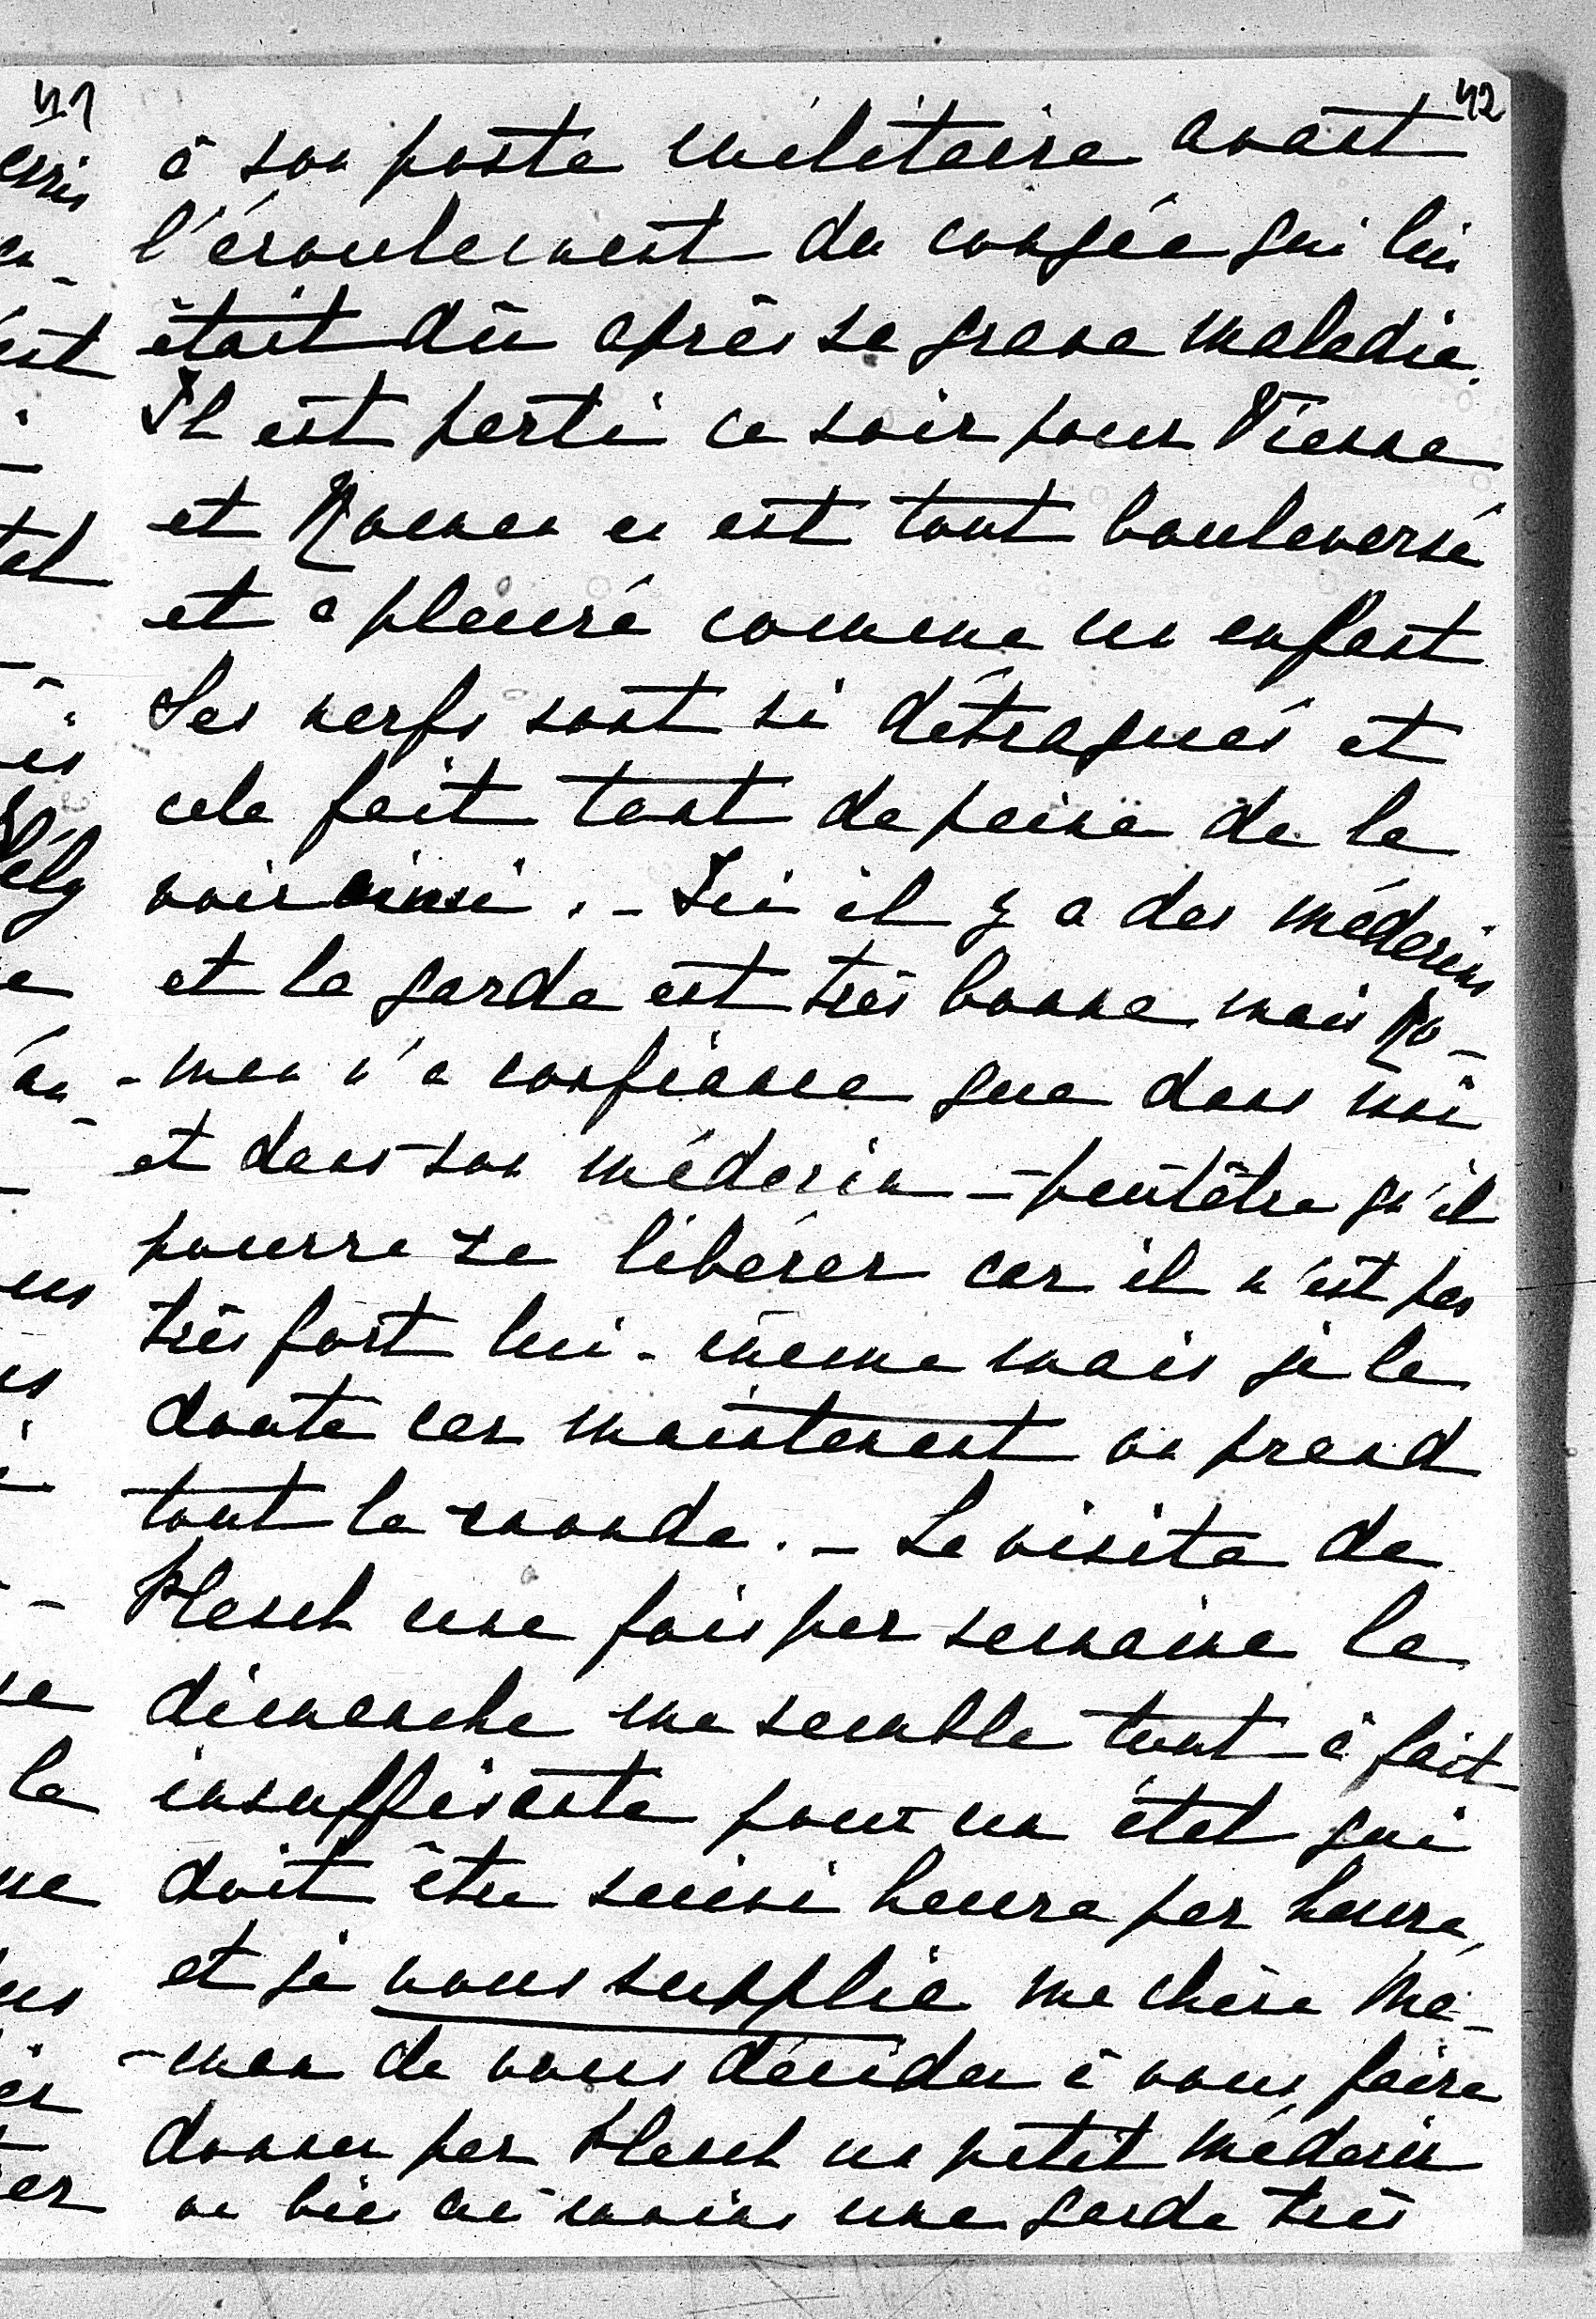 41
42
à son poste militaire avant
l'écoulement du congée qui lui
était dû après sa grave maladie.
Il est parti ce soir pour Vienne
et Roman en est tout bouleversé
et a pleuré comme un enfant
Ses nerfs sont si détraqués et
cela fait tant de peine de le
voir ainsi. - Ici il y a des médecins
et la garde est très bonne mais Ro-
-man n'a confiance que dans moi
et dans son médecin - peutêtre qu'il
pourra se libérer car il n'est pas
très fort lui-même mais je le
doute car maintenant on prend
tout le monde. - La visite de
Plesch une fois par semaine le
dimanche me semble tout à fait
insuffisante pour un état qui
doit être suivi heure par heure,
et je vous supplie ma chère Ma-
-man de vous décider à vous faire
donner par Plesch un petit médecin
ou bien au moins une garde très